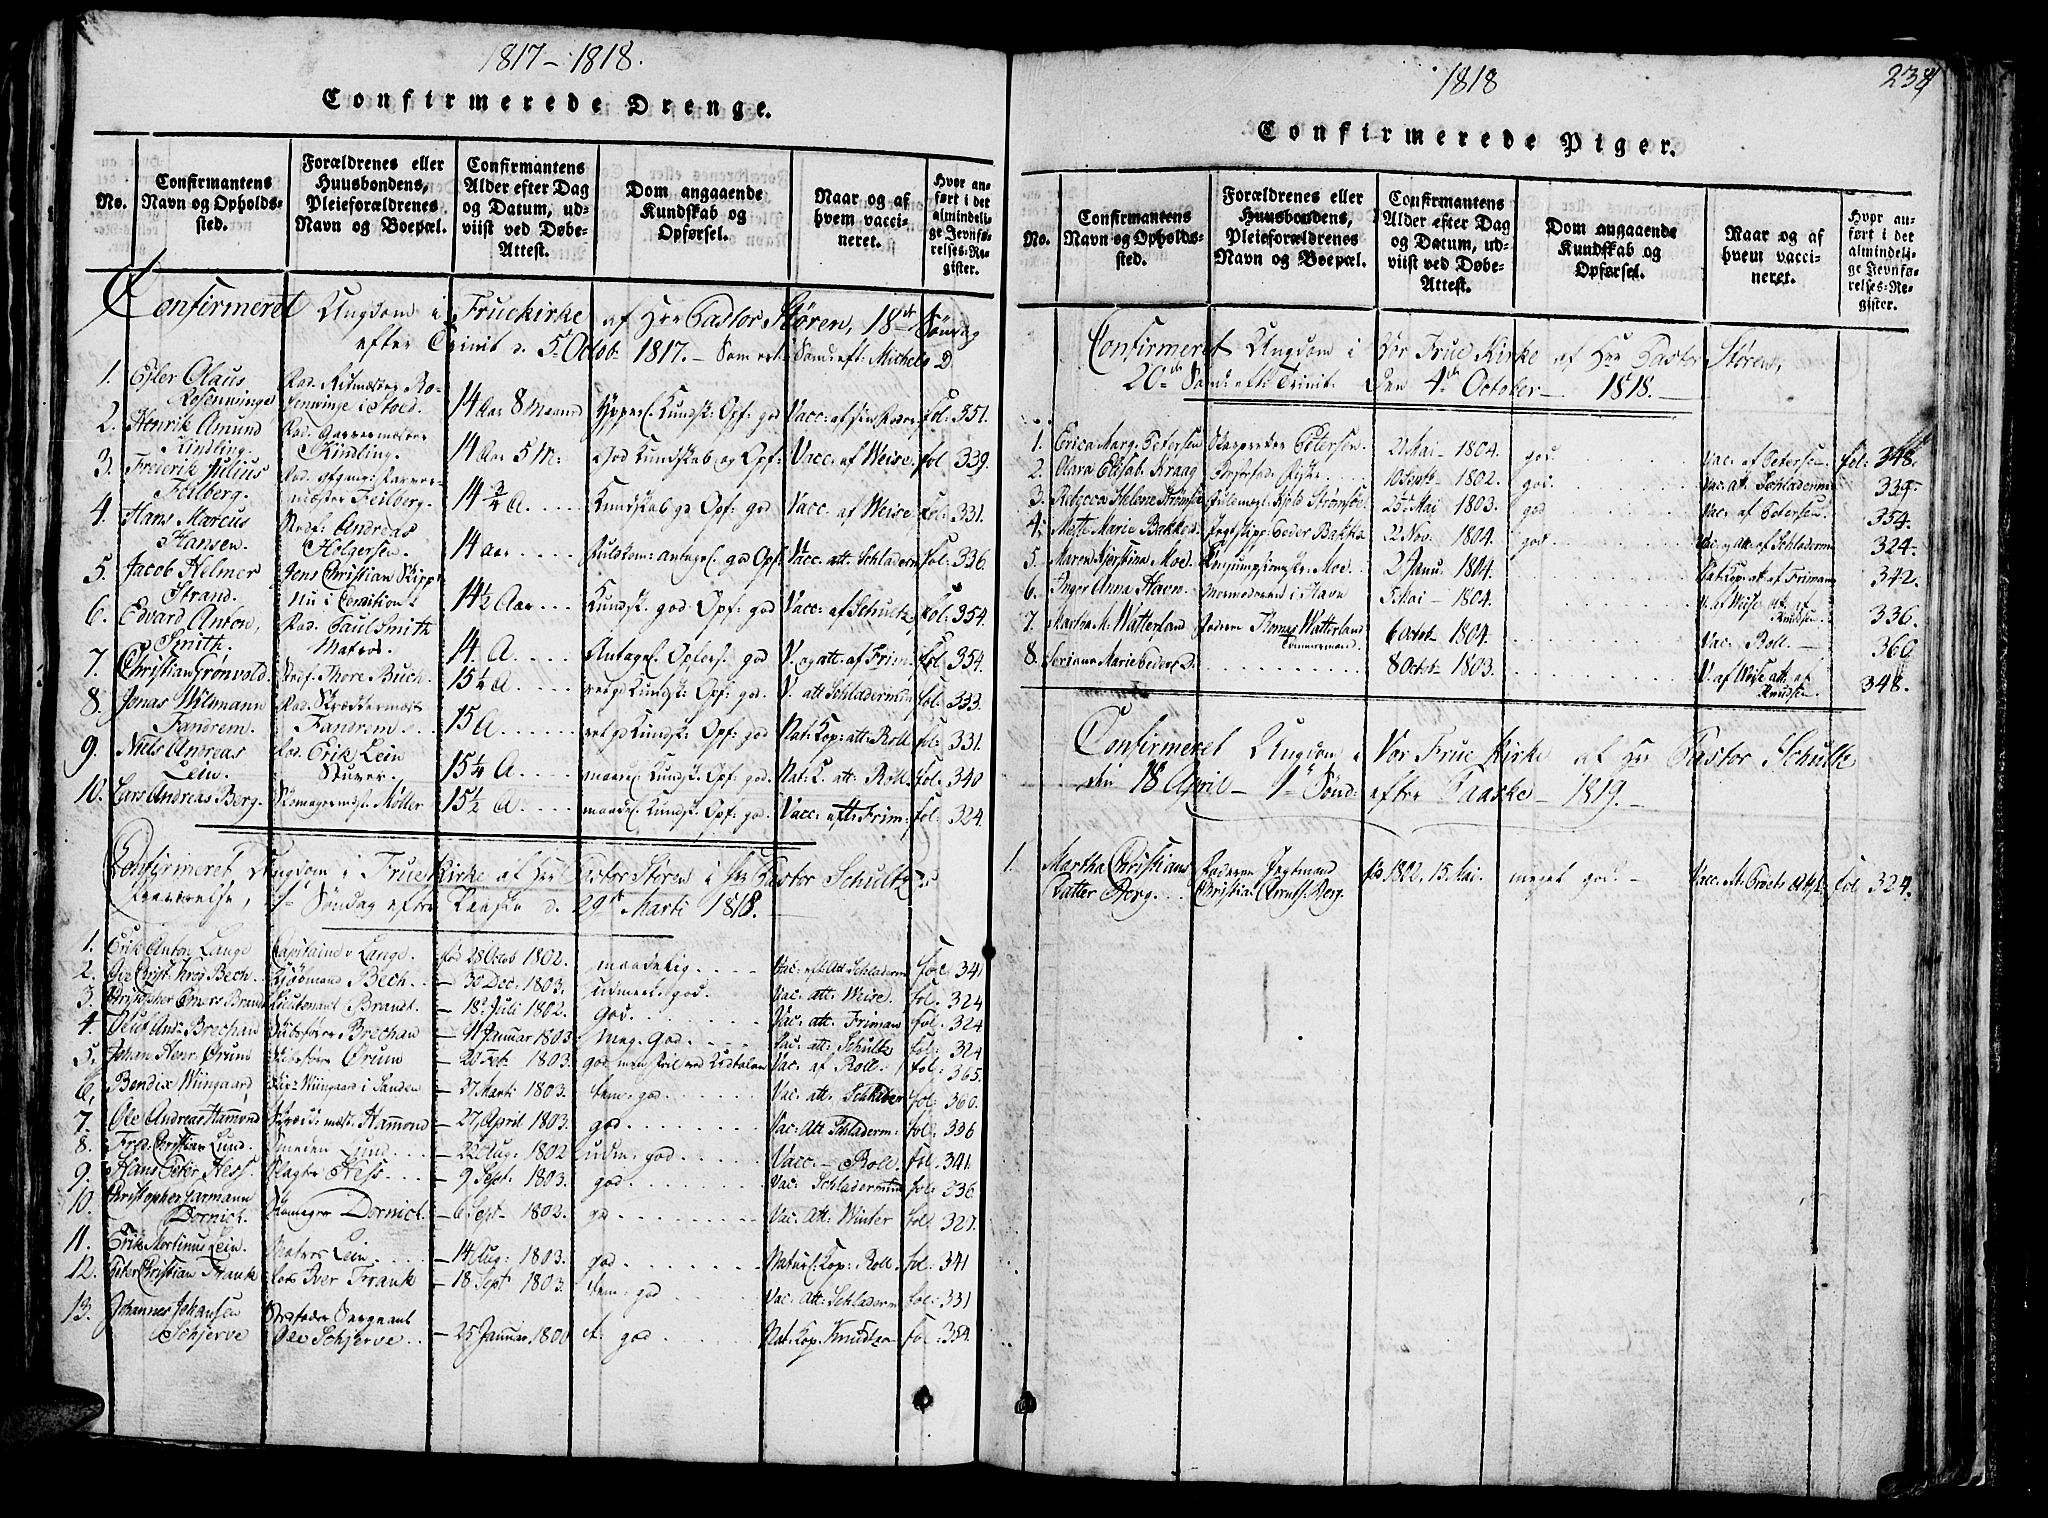 1817-1818.
Confirmerede Drenge.
No.
Confirmantens Navn og Opholdssted.
Forældrenes eller Huusbondens, Pleieforældrenes Navn og Boepæl.
Confirmantens Alder efter Dag og Datum, udviist ved Døbe-Attest.
Dom angaaende Kundskab og Opførsel.
Naar og af hvem vaccineret.
Hvor anført i det almindelige Jevnførelses-Register.
Confirmeret Ungdom i Fruekirke af Hrr Pastor Støren, 18de Søndag
efter Trinit d. 5t Octobr 1817.
1. Olaus Rosenwinge 14 Aar 8 Maaned fol: 351.
2. Henrik Amund Kindling. Kindling. 14 Aar 5 M: God Kundskab og Opf: Vacc. af Weise. fol. 339.
3. Frederik Julius Feilberg. Feilberg. 14 3/4 A Kundskab gd Opf: god Vacc. af Weise fol: 331.
4. Hans Marcus Hansen. Andreas Holgersen. 14 Aar Vacc: att: Schladerm fol: 336.
5. Jacob Helmer Strand. Jens Christian 14 1/2 Aar Kundsk: god Opf: god Vacc: af Schultz fol: 354.
6. Edvard Anton, Smith. Paul Smith Matros. 14. A V. og att: af Frim. fol: 354.
7. Christian Grønvold Thore Buch. 15 1/2 A Kundsk: Opf: god. V. att Schladerm fol: 333.
8. Jonas Wilmann Fandrem. Fandrem 15 A Kundsk: Opf: god Nat: Kop: att: Roll fol: 331.
9. Niels Andreas Lein. Erik Lein 15 1/4 A Kundsk: Opf: god. Nat: K. att: Roll. fol: 340
10. Lars Andreas Berg. Møller 15 1/2 A Kundsk: Opf: god Vacc: att: Frim: fol: 324.
Confirmeret Ungdom i Frue Kirke af Hrr Pastor Støren i Hrr Pastor Schultz's
Fraværelse, 1te Søndag efter Paaske d. 29de Marti 1818.
1. Erik Anton Lange Capitaine v Lange. fød 28 Octob 1802. maadelig. Vac: Att Schladerm fol: 341
2. Bech. Bech - 30 Dec: 1803. god. Vac: att: Weise. fol: 324
3. Christopher Brandt Lieutenant Brandt. - 18 Juli 1802. god. Vac: att: Friman fol: 324
4. Oluf And: Brechan Brechan - 11 Januar 1803 Meg. God. Vac: att: Schultz fol: 324
5. Johan Henr: Ørum Ørum - 20 Feb: 1803. god Vac: af Roll. fol: 365.
6. Bendix Wiingaard Wiingaard i Sanden - 27 Marti 1803. tem: god. Vac: att: fol: 360.
7. Ole Andreas Hammond Hammond - 27 April 1803. god. Vac: Att Schladerm: fol: 336
8. Fred: Christian Lund. Smeden Lund - 22 Aug: 1802 udm: god Vacc. - Roll. fol: 341.
9. Hans Peter Hess. Slagter Hess - 9 Sept. 1803. god. Vac: Schladerm fol: 336
10. Christopher Dornick. Dornick. - 6 Sept- 1802. gd Vac: Att: Winter fol: 327.
11. Erik Mortinus Lein. Matros Lein - 14 Aug: 1803. god Naturl: Kop: Roll. fol: 341
12. Peter Christian Frank Iver Frank - 18 Sept. 1803. tem: god Vac: Att: Schladerm fol: 331
13. Johannes Johansen Schjerve Ole Schjerve - 25 Januar 1800 god Nat: Kop. Knudtzn fol: 354.
1818
238
Confirmerede Piger.
No.
Confirmantens Navn og Opholdssted.
Forældrenes eller Huusbondens, Pleieforældrenes Navn og Boepæl.
Confirmantens Alder efter Dag og Datum, udviist ved Døbe-Attest.
Dom angaaende Kundskab og Opførsel.
Naar og af hvem vaccineret.
Hvor anført i det almindelige Jevnførelses-Register.
Confirmeret Ungdom i Vor Frue Kirke af Hrr Pastor Støren,
20de Sønd: eft: Trinit. den 4de October - 1818.
1. Erica Marg. Petersen Petersen. 21 Mai - 1804. god. Vac: af Petersen fol: 348.
2. Clara Elisab. Kraag 10 Septb - 1802. god. Vac: att. Schladerm 339.
3. Rebecca Helene Strømsøe Strømsøe 25 Mai 1803. god Vac: af Petersen. 354.
4. Mette Marie Bakke Peder Bakke 22 Nov. 1804. god Att: af Schladerm 324.
5. Maren Kjerstina Moe. Moe. 2 Janu. 1804. Nat: Kop: att: af Friman 342.
6. Inger Anna Havn. Havn 5 Mai - 1804. V. af Weise att. af Knudtzn. 336.
7. Martha M. Watterland Faderen Thomas Watterland Tømmermand 6 Octob 1804. Vac: Roll - 360
8. Marie Peders D. 8 Octob - 1803. V. af Weise att. af Knudtzn. 348.
Confirmeret Ungdom i Vor Frue Kirke af Hrr Pastor Schultz
den 18 April - 1te Sønd: efter Paaske - 1819. -
1. Martha Christians Datter Berg. Faderen Jagtmand Christian Arents. Berg. fød 1802. 15 Mai. meget god. fol: 324.